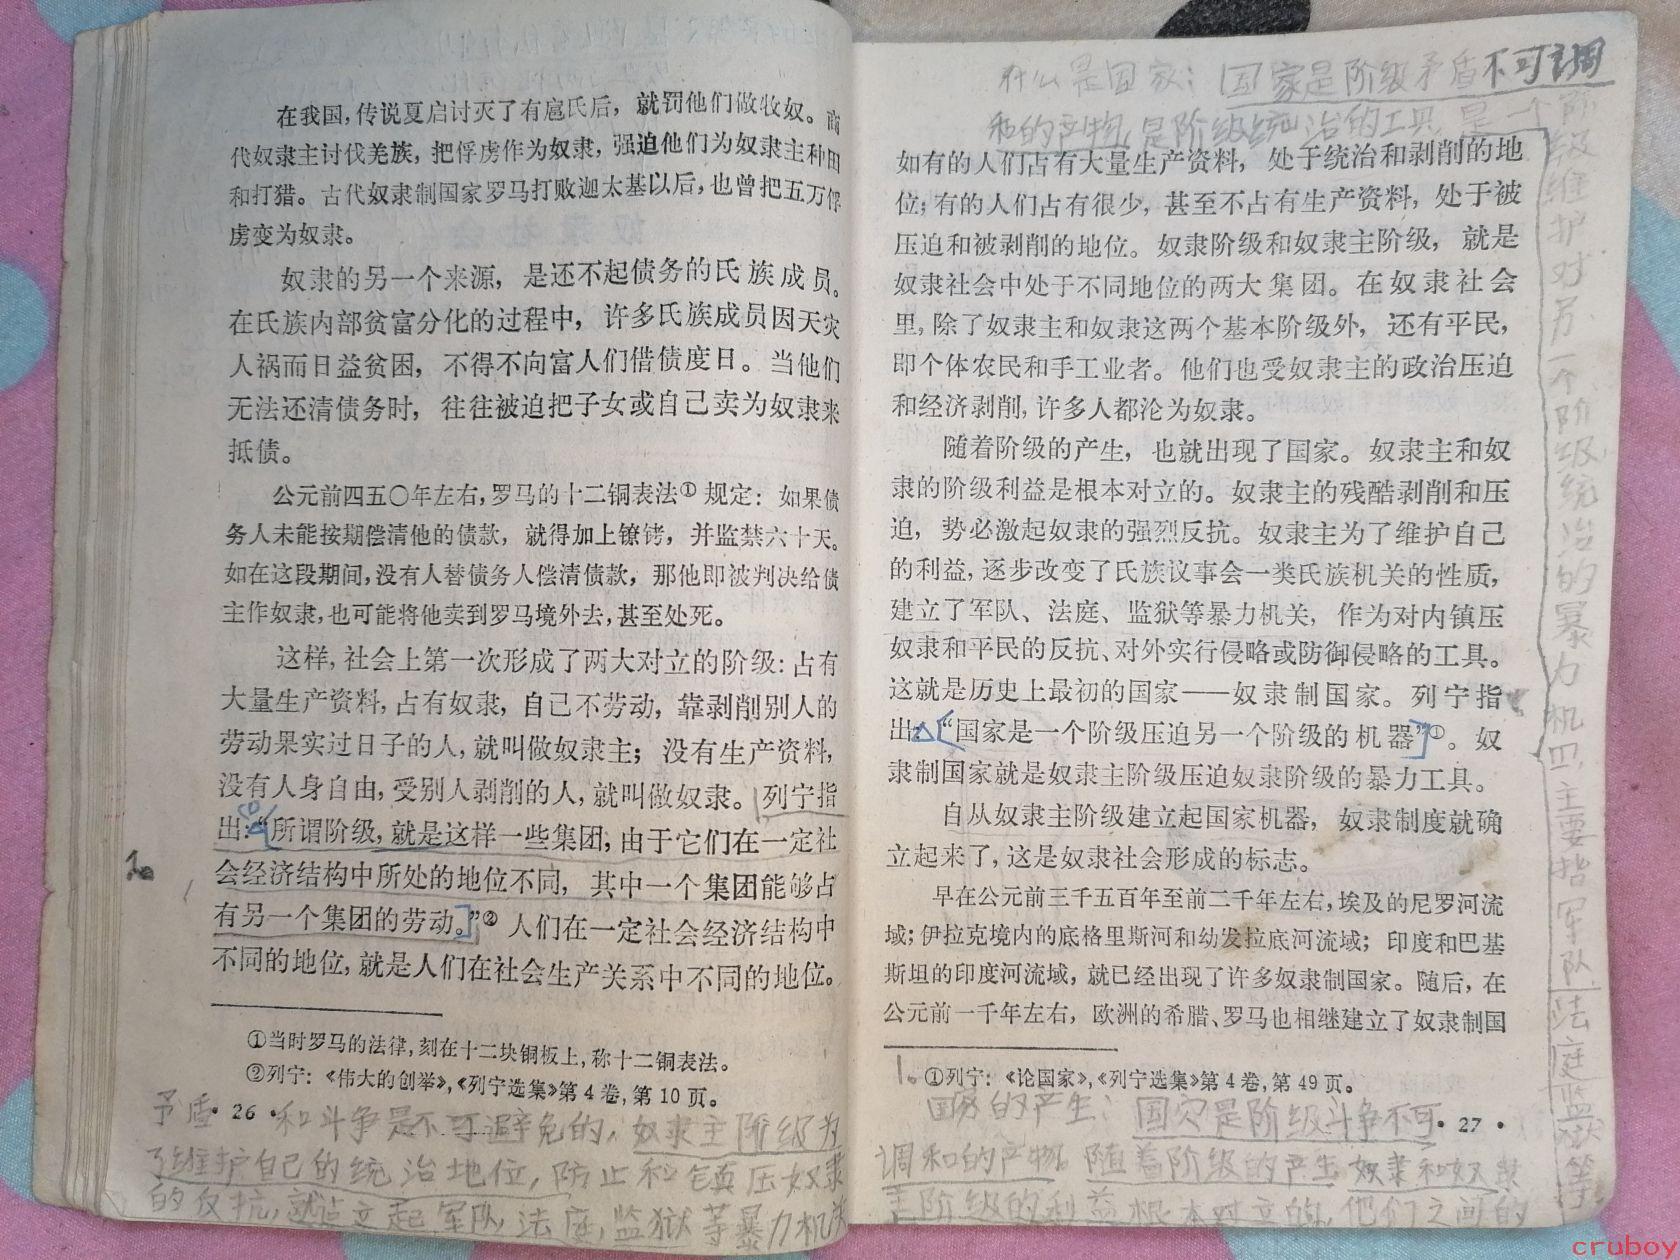 在我国，传说夏启讨灭了有扈氏后，就罚他们做牧奴。商
代奴隶主讨伐羌族，把俘虏作为奴隶，强迫他们为奴隶主种田
和打猎。古代奴隶制国家罗马打败迦太基以后，也曾把五万俘
虏变为奴隶。
奴隶的另一个来源，是还不起债务的氏族成员。
在氏族内部贫富分化的过程中，许多氏族成员因天灾
人祸而日益贫困，不得不向富人们借债度日。当他们
无法还清债务时，往往被迫把子女或自己卖为奴隶来
抵债。
公元前四五〇年左右，罗马的十二铜表法①规定：如果债
务人未能按期偿清他的债款，就得加上镣铐，并监禁六十天。
如在这段期间，没有人替债务人偿清债款，那他即被判决给债
主作奴隶，也可能将他卖到罗马境外去，甚至处死。
这样，社会上第一次形成了两大对立的阶级：占有
大量生产资料，占有奴隶，自己不劳动，靠剥削别人的
劳动果实过日子的人，就叫做奴隶主；没有生产资料，
没有人身自由，受别人剥削的人，就叫做奴隶。列宁指
出：“所谓阶级，就是这样一些集团，由于它们在一定社
会经济结构中所处的地位不同，其中一个集团能够占
有另一个集团的劳动。”②人们在一定社会经济结构中
不同的地位，就是人们在社会生产关系中不同的地位。
①当时罗马的法律，刻在十二块铜板上，称十二铜表法。
②列宁：《伟大的创举》，《列宁选集》第4卷，第10页。
矛盾·26·和斗争是不可避免的，奴隶主阶级为
了维护自己的统治地位，防止和镇压奴隶
的反抗，就建立起军队，法庭，监狱等暴力机关
什么是国家：国家是阶级矛盾不可调
和的产物，是阶级统治的工具，是一个阶
级维护对另一个阶级统治的暴力机四，主要指军队法庭监狱等
如有的人们占有大量生产资料，处于统治和剥削的地
位；有的人们占有很少，甚至不占有生产资料，处于被
压迫和被剥削的地位。奴隶阶级和奴隶主阶级，就是
奴隶社会中处于不同地位的两大集团。在奴隶社会
里，除了奴隶主和奴隶这两个基本阶级外，还有平民，
即个体农民和手工业者。他们也受奴隶主的政治压迫
和经济剥削，许多人都沦为奴隶。
随着阶级的产生，也就出现了国家。奴隶主和奴
隶的阶级利益是根本对立的。奴隶主的残酷剥削和压
迫，势必激起奴隶的强烈反抗。奴隶主为了维护自己
的利益，逐步改变了氏族议事会一类氏族机关的性质，
建立了军队、法庭、监狱等暴力机关，作为对内镇压
奴隶和平民的反抗、对外实行侵略或防御侵略的工具。
这就是历史上最初的国家——奴隶制国家。列宁指
出：“国家是一个阶级压迫另一个阶级的机器”①。奴
隶制国家就是奴隶主阶级压迫奴隶阶级的暴力工具。
自从奴隶主阶级建立起国家机器，奴隶制度就确
立起来了，这是奴隶社会形成的标志。
早在公元前三千五百年至前二千年左右，埃及的尼罗河流
域；伊拉克境内的底格里斯河和幼发拉底河流域；印度和巴基
斯坦的印度河流域，就已经出现了许多奴隶制国家。随后，在
公元前一千年左右，欧洲的希腊、罗马也相继建立了奴隶制国
1。①列宁：《论国家》，《列宁选集》第4卷，第49页。
国家的产生：国家是阶级斗争不可·27·
调和的产物。随着阶级的产生 奴隶和奴隶
主阶级的利益根本对立的，他们之间的
cruboy